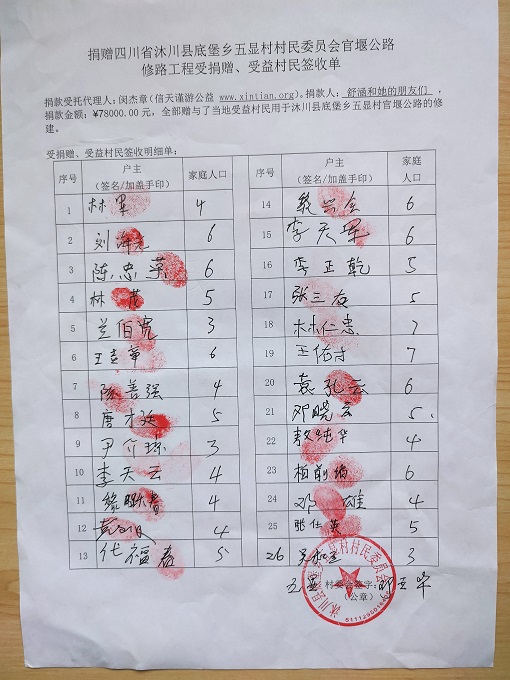 捐赠四川省沐川县底堡乡五显村村民委员会官堰公路
修路工程受捐赠、受益村民签收单
捐款受托代理人：闵杰章（信天谨游公益 www.xintian.org）。捐款人： 舒涵和她的朋友们 ，
捐款金额：¥78000.00 元，全部赠与了当地受益村民用于沐川县底堡乡五显村官堰公路的修
建。
受捐赠、受益村民签收明细单：
序号 户主（签名/加盖手印） 家庭人口
1 林军 4
2 刘 6
3 陈忠 6
4 林茂 5
5 兰伯宽 3
6 王 华 6
7 陈善强 4
8 唐才 5
9 尹介 3
10 李天云 4
11 4
12 4
13 代福 5
序号 户主（签名/加盖手印） 家庭人口
14 6
15 李天军 6
16 李正乾 5
17 张三友 5
18 林仁忠 7
19 王佑才 7
20 袁孔云 6
21 邓晓云 5
22 华 4
23 柏前 6
24 邓 雄 4
25 张仕英 5
26 3
五显 村委会签字：邓
（公章）